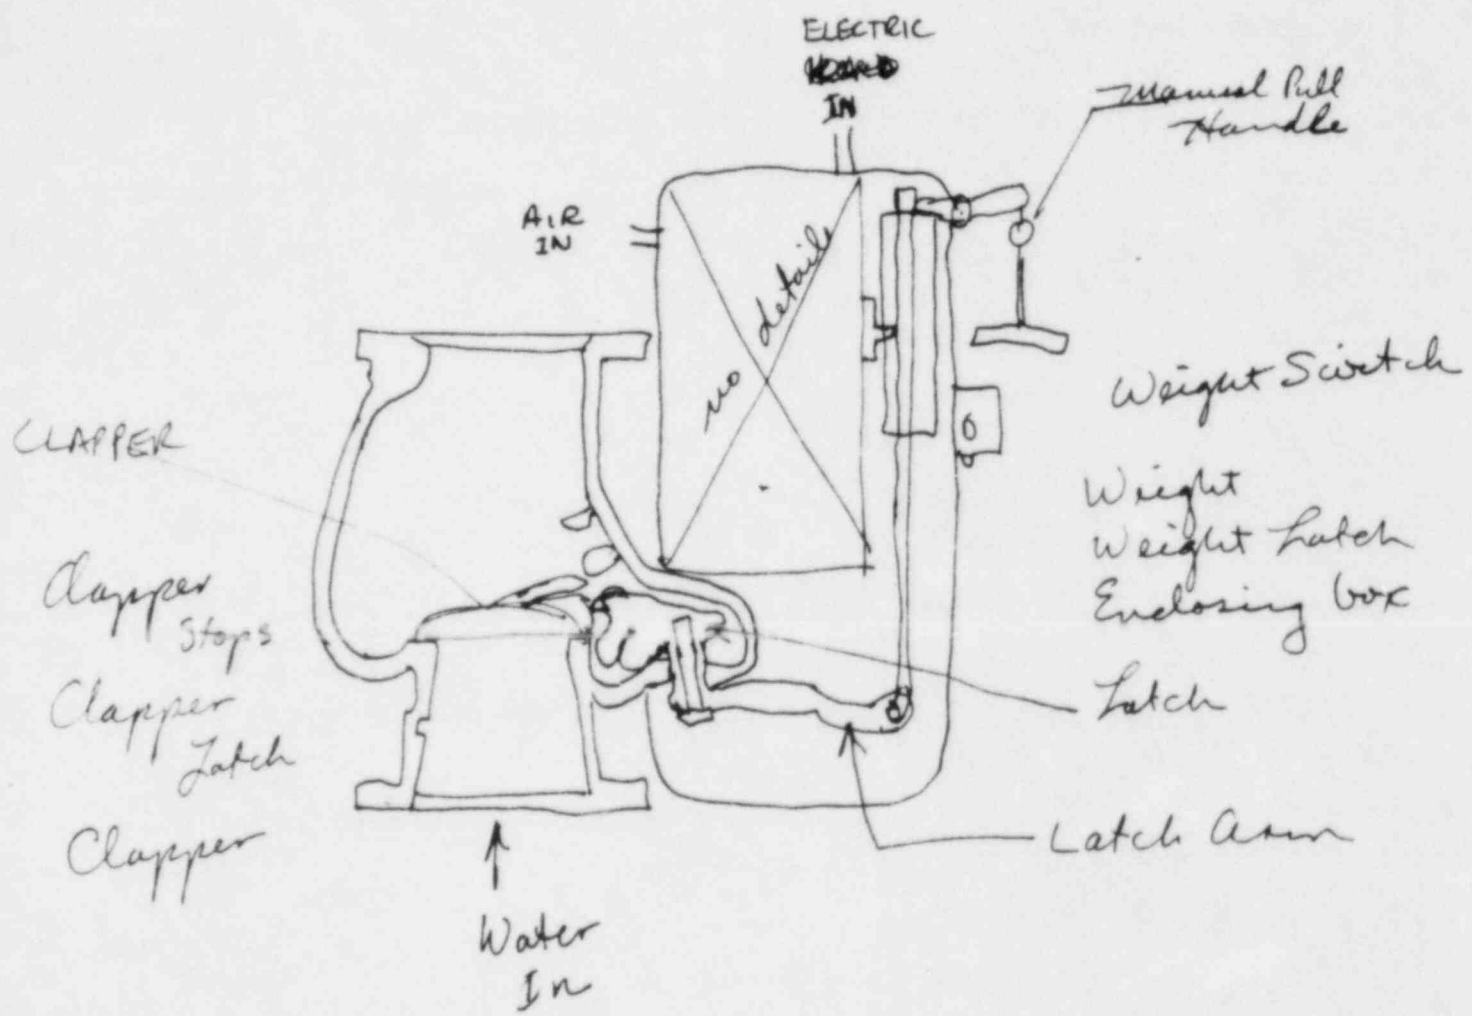 ELECTRIC
IN
Manual Pull
Handle
AIR
IN
no details
Weight Switch
CLAPPER
Weight
Weight Latch
Enclosing box
Clapper
Stops
Clapper
Latch
Latch
Clapper
Latch Arm
Water
In